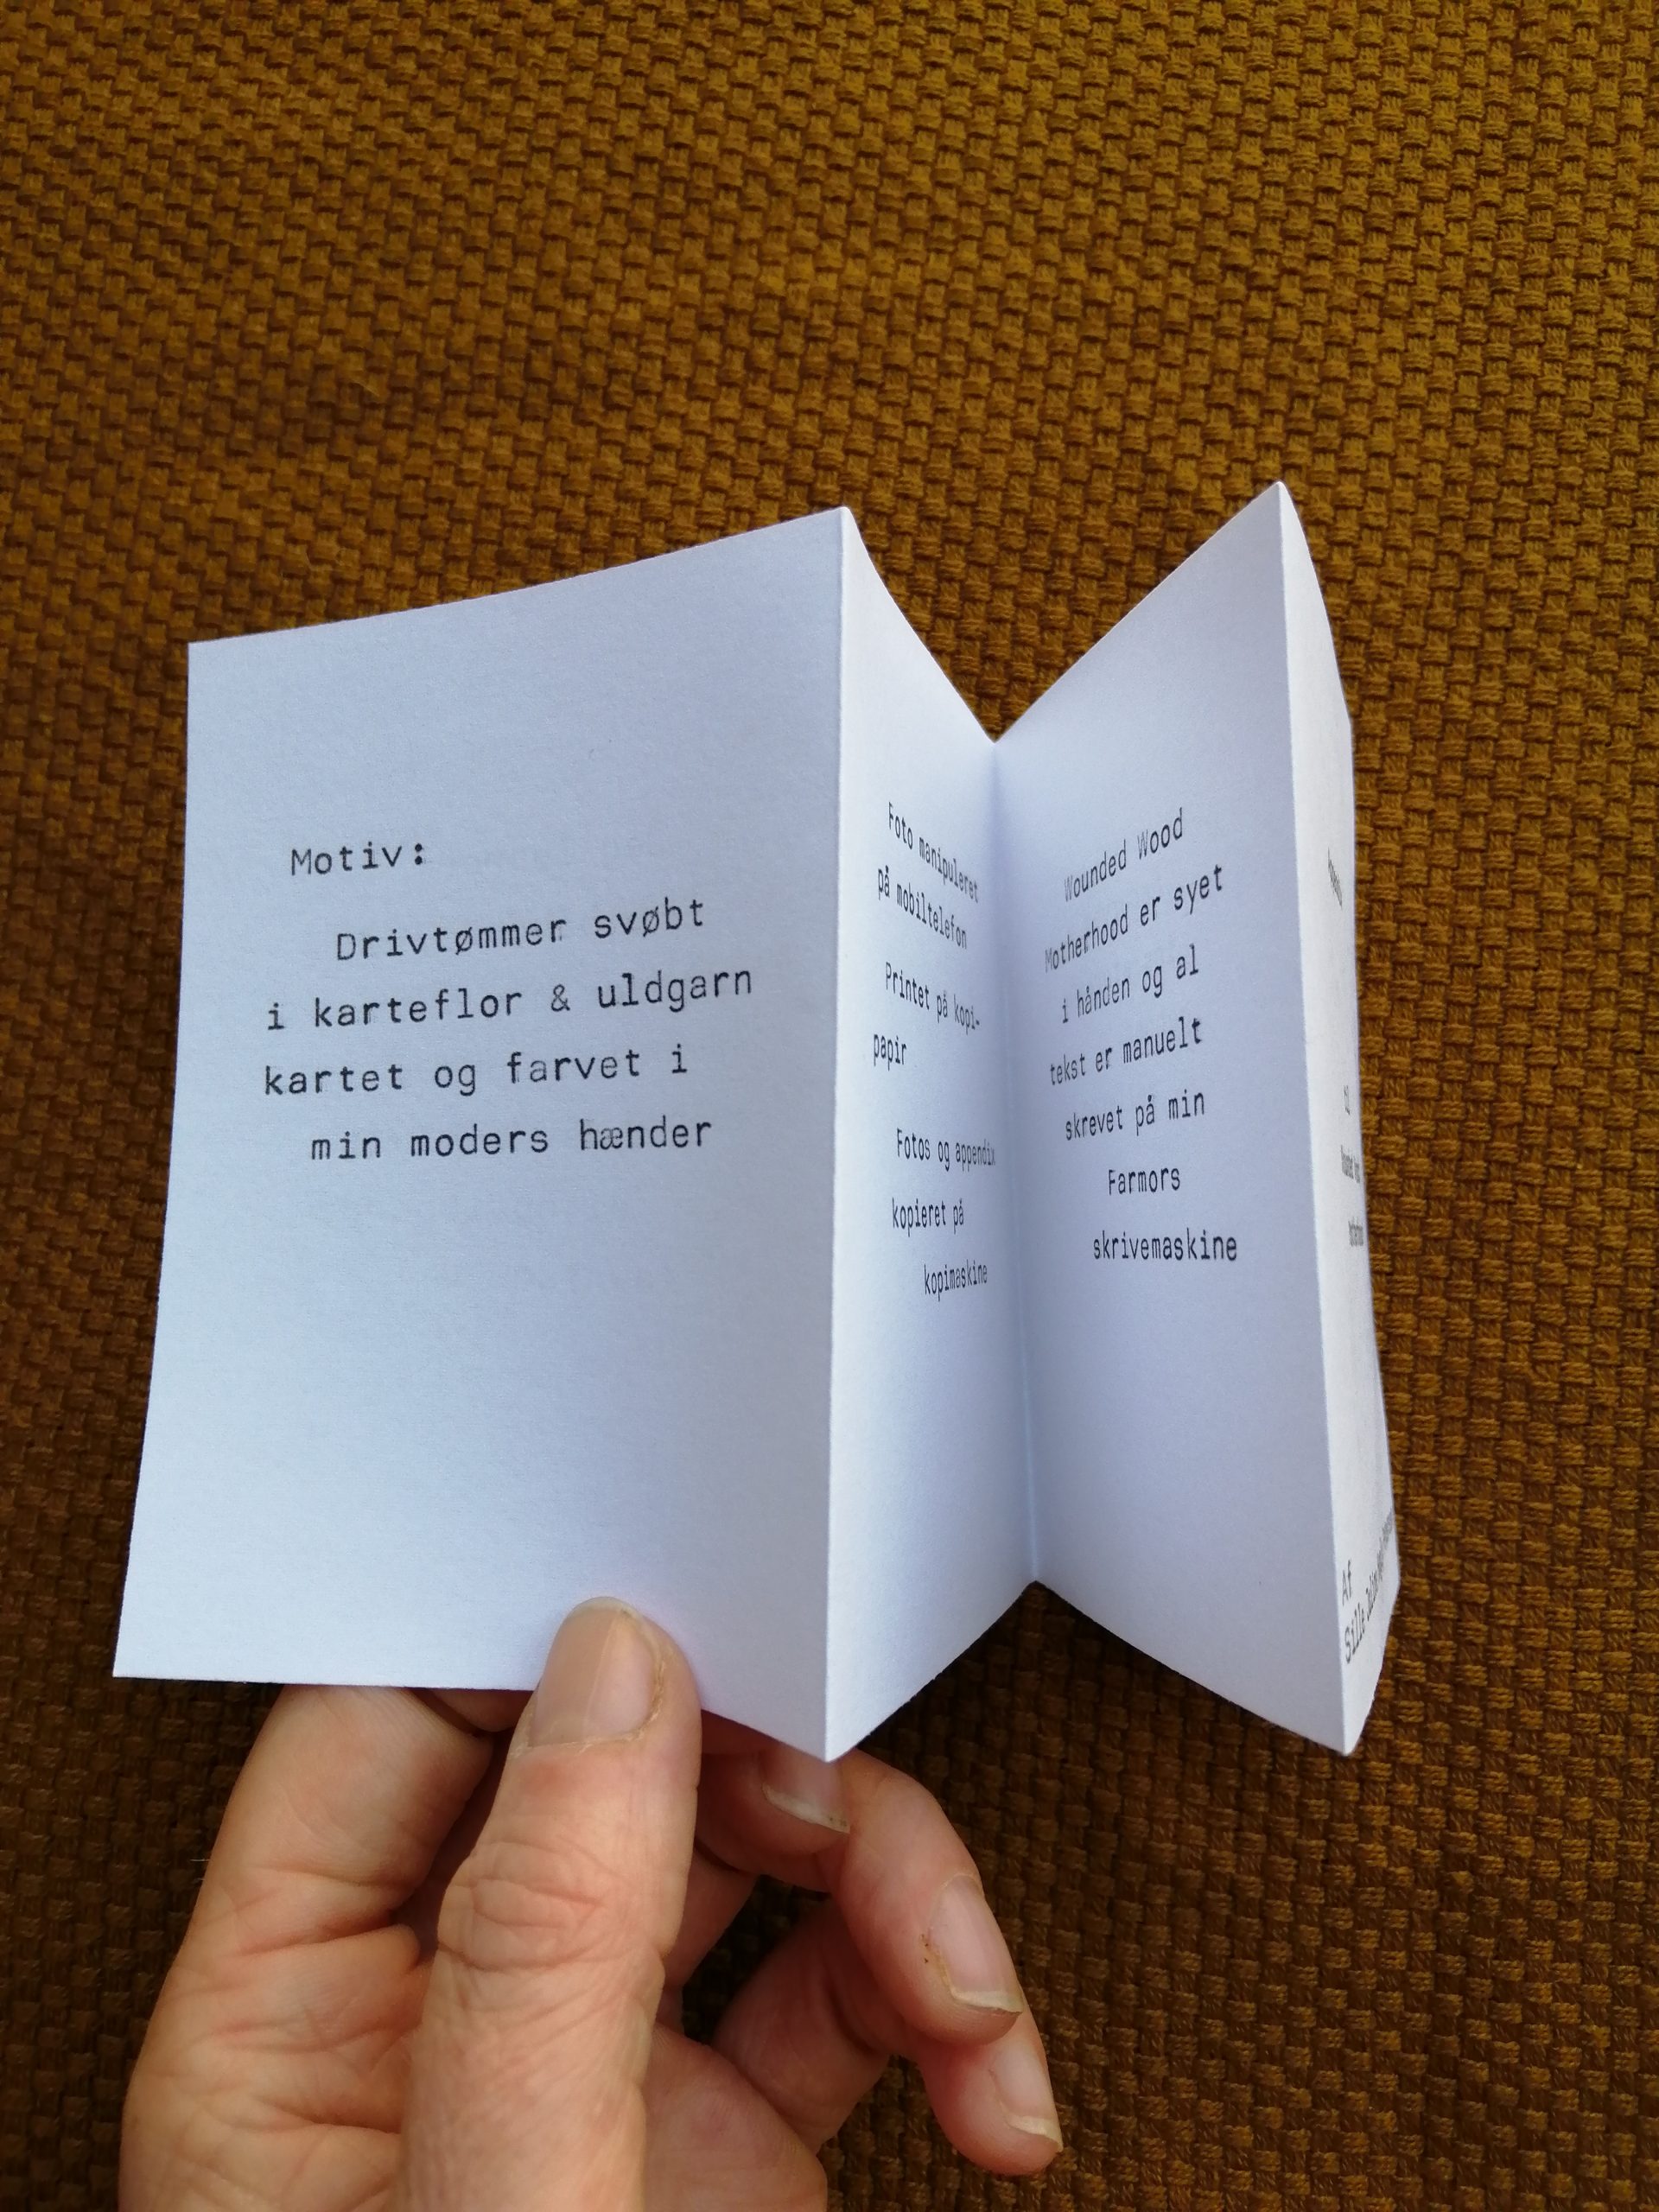 Motiv:
Drivtømmer svøbt
i karteflor & uldgarn
kartet og farvet i
min moders hænder
Foto manipuleret
på mobiltelefon
Printet på kopi-
papir
Fotos og appendix
kopieret på
kopimaskine
Wounded Wood
Motherhood er syet
i hånden og al
tekst er manuelt
skrevet på min
Farmors
skrivemaskine
til
Af
Sille